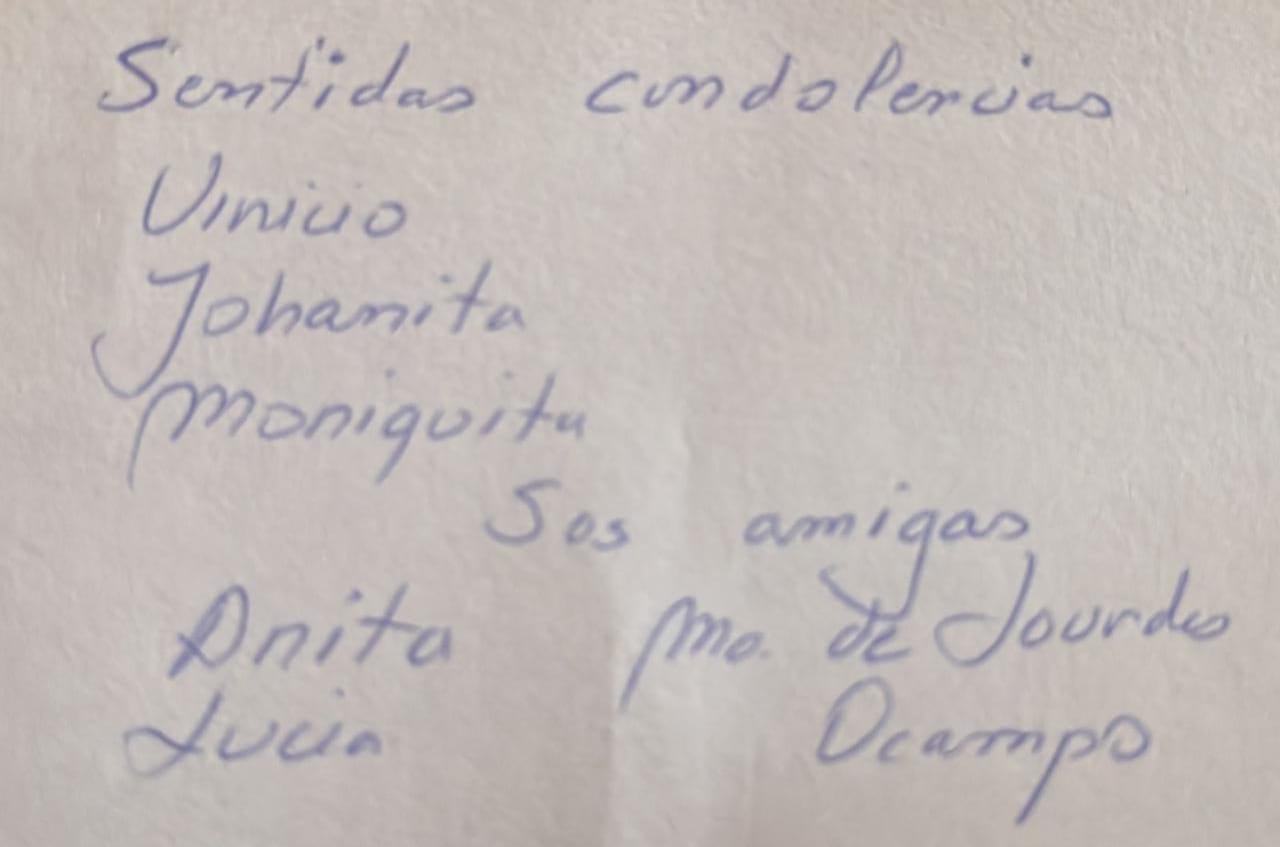 Sentidas condolencias
Vinicio
Johanita
Moniquita
Sus amigas
Anita Ma. de Lourdes
Lucia Ocampo